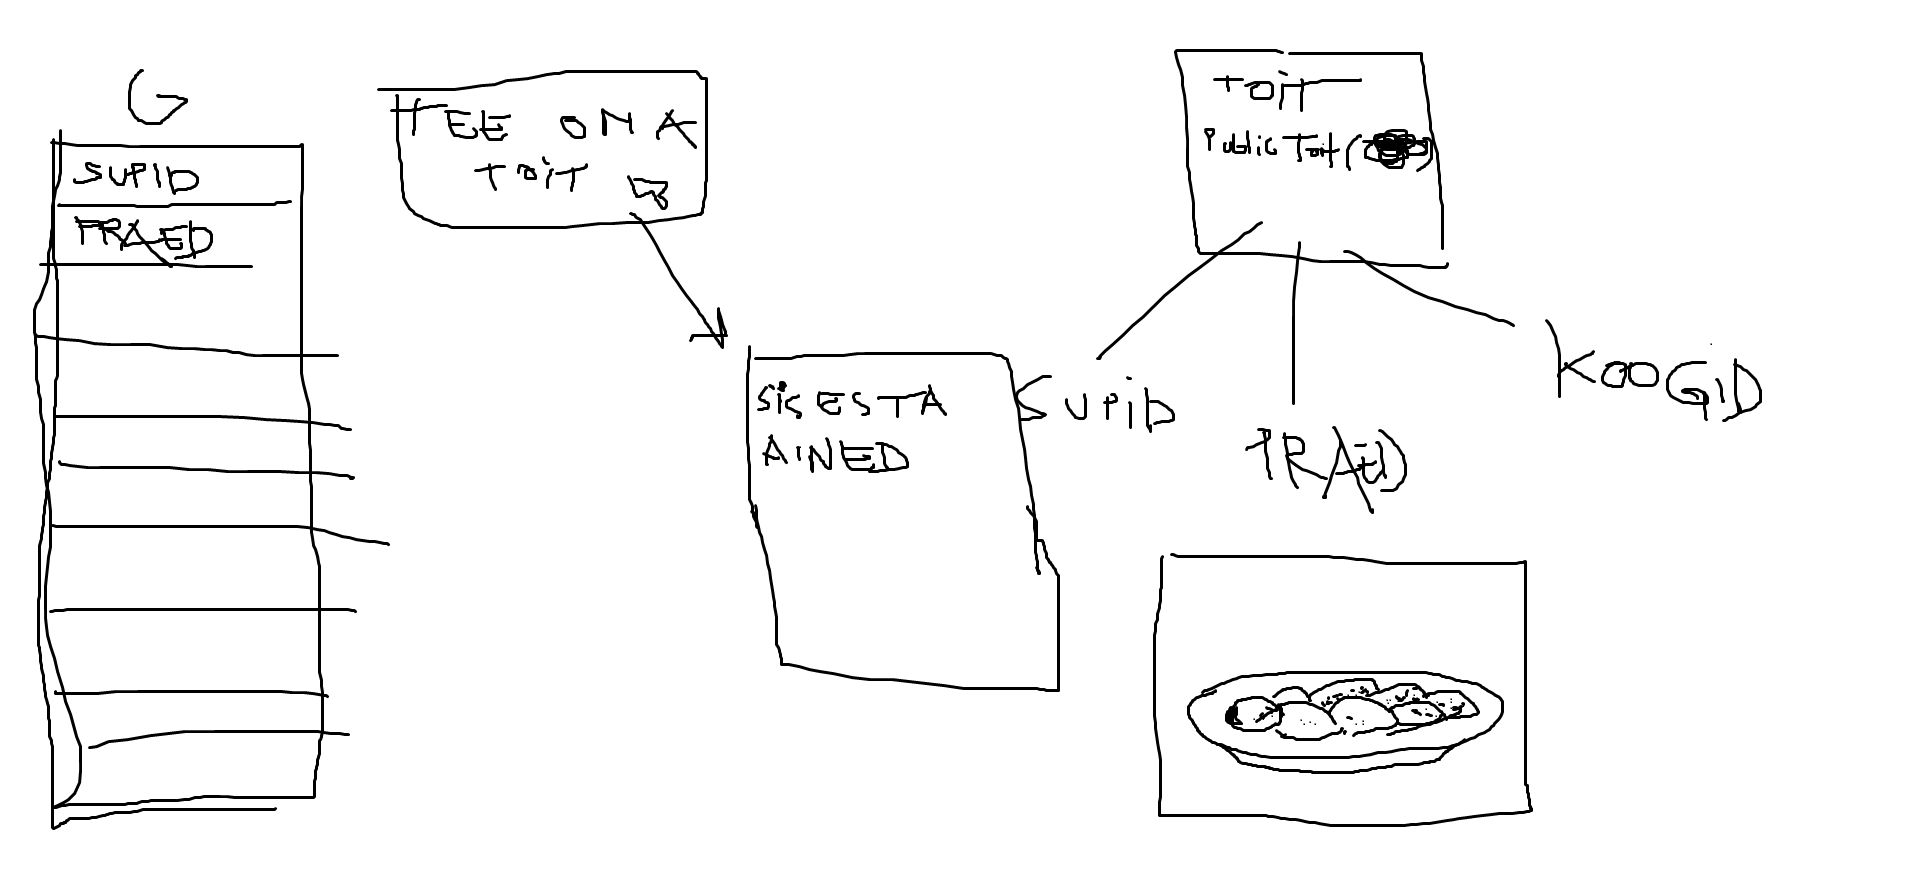 G
SUPID
HEE ON A
TOiT
SiSESTA
AiNED
TOiT
Public Toit(
SUPiD
KOOGID